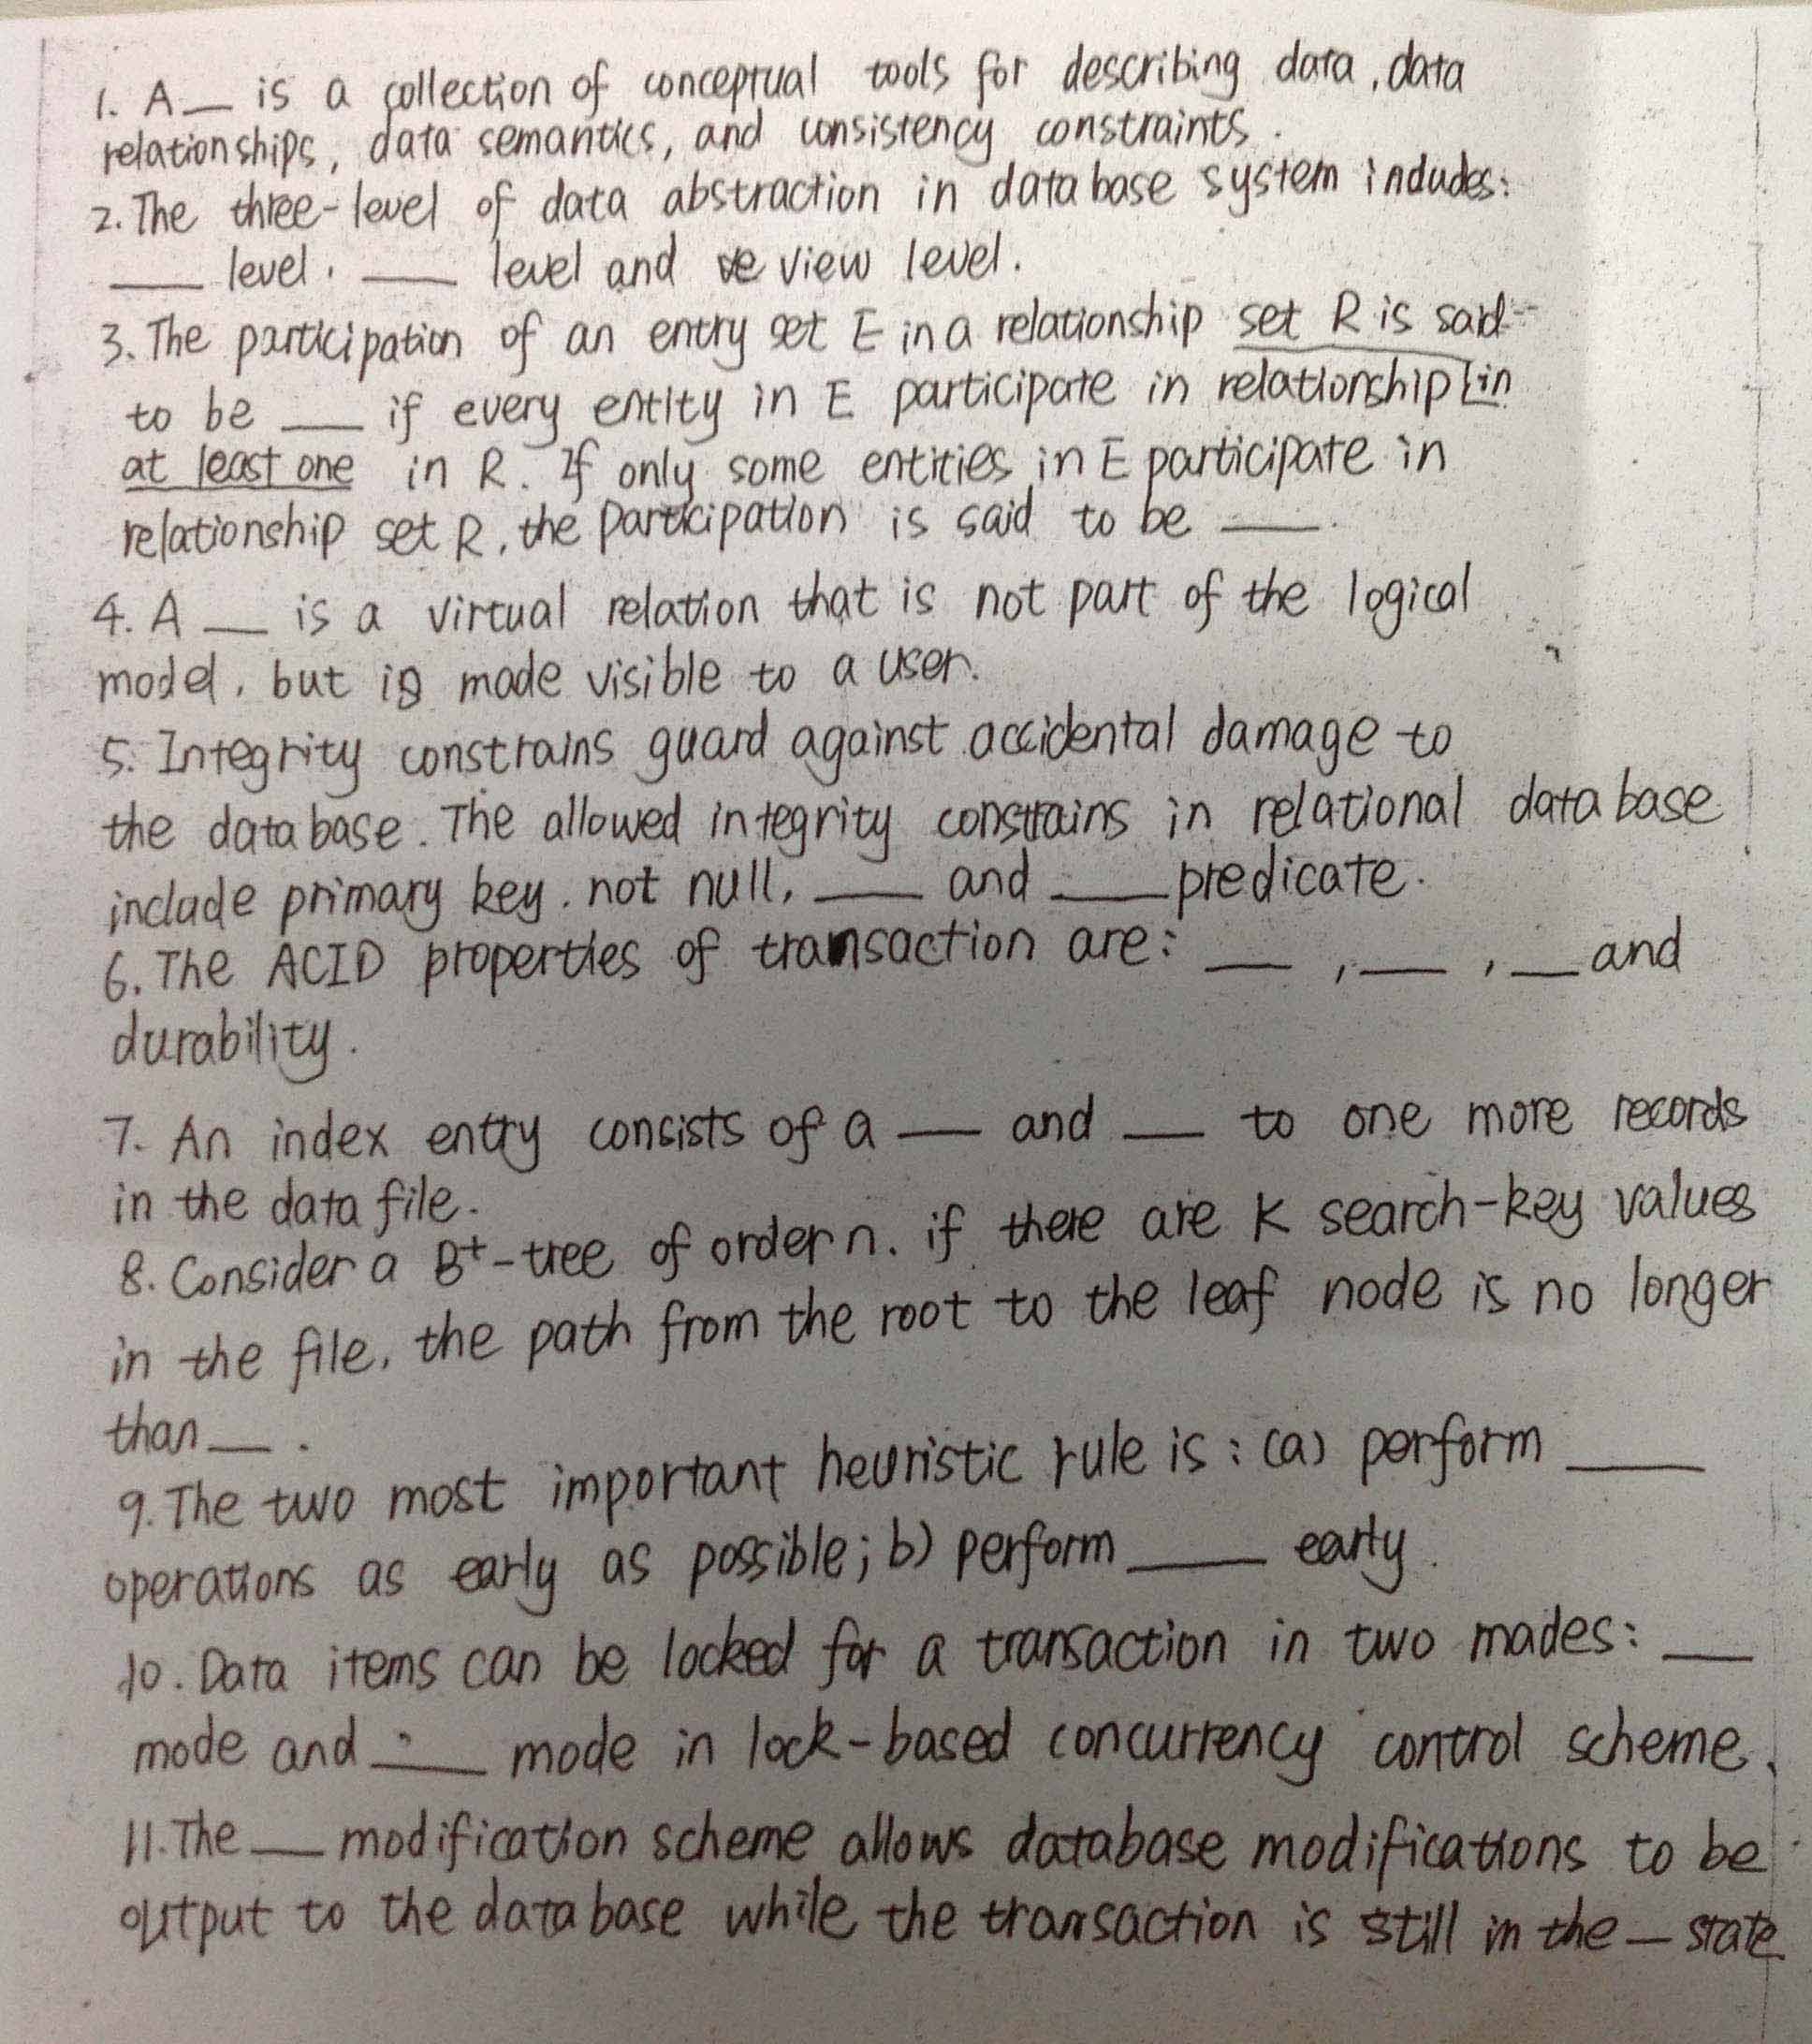 1. A __ is a collection of conceptual tools for describing data, data
relationships, data semantics, and consistency constraints.
2. The three-level of data abstraction in database system includes:
___ level, ___ level and ve view level.
3. The participation of an entry set E in a relationship set R is said
to be ___ if every entity in E participate in relationship in
at least one in R. If only some entities in E participate in
relationship set R, the participation is said to be ___.
4. A __ is a virtual relation that is not part of the logical
model, but is made visible to a user.
5. Integrity constrains guard against accidental damage to
the database. The allowed integrity constrains in relational database
include primary key, not null, ___ and ___ predicate.
6. The ACID properties of transaction are: ___, ___, __ and
durability.
7. An index entry consists of a __ and __ to one more records
in the data file.
8. Consider a B+-tree of order n. if there are K search-key values
in the file, the path from the root to the leaf node is no longer
than __.
9. The two most important heuristic rule is: (a) perform ____
operations as early as possible; b) perform ____ early.
10. Data items can be locked for a transaction in two mades: ___
mode and ___ mode in lock-based concurrency control scheme.
11. The __ modification scheme allows database modifications to be
output to the database while the transaction is still in the _ state